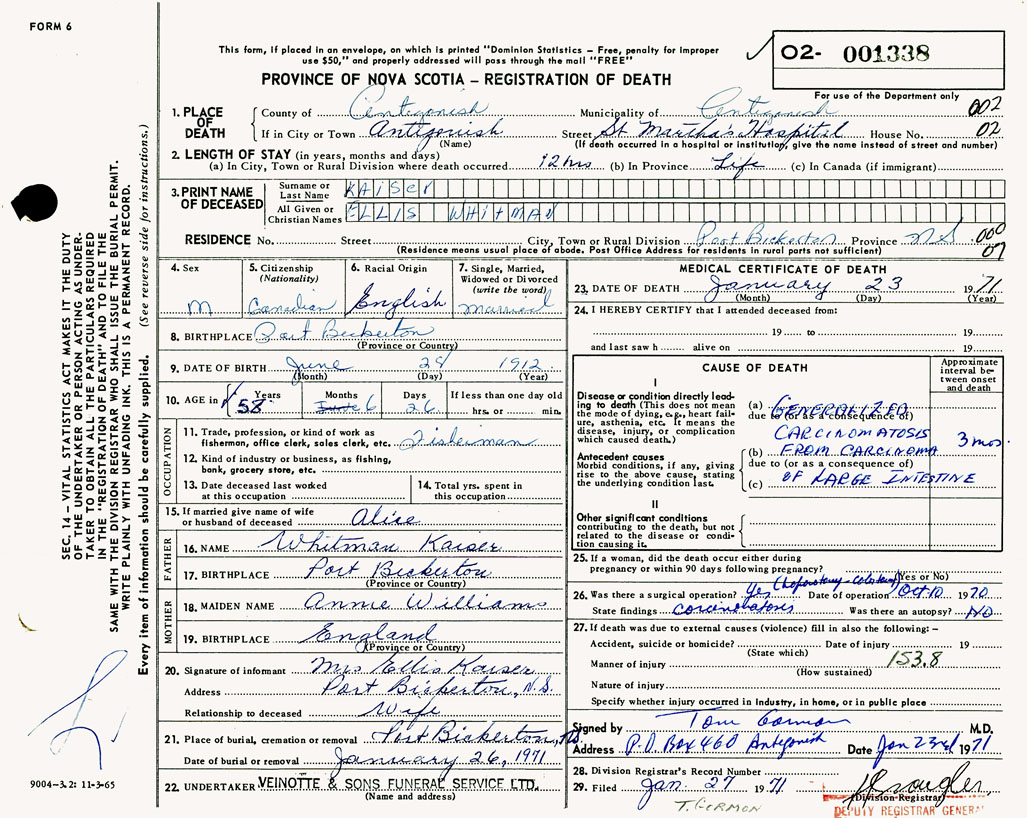 FORM 6
This form, if placed in an envelope, on which is printed "Dominion Statistics - Free, penalty for improper
use $50," and properly addressed will pass through the mail "FREE"
O2- 001338
PROVINCE OF NOVA SCOTIA - REGISTRATION OF DEATH
For use of the Department only
1. PLACE OF DEATH
County of Antigonish Municipality of Antigonish 002
If in City or Town Antigonish Street St Martha's Hospital House No. 02
(Name) (If death occurred in a hospital or institution, give the name instead of street and number)
2. LENGTH OF STAY (in years, months and days)
(a) In City, Town or Rural Division where death occurred 12 hrs (b) In Province Life (c) In Canada (if immigrant)
3. PRINT NAME OF DECEASED
Surname or Last Name KAISER
All Given or Christian Names ELLIS WHITMAN
RESIDENCE No. Street City, Town or Rural Division Port Bickerton Province NS 000
(Residence means usual place of abode. Post Office Address for residents in rural parts not sufficient) 07
4. Sex
M
5. Citizenship
(Nationality)
Canadian
6. Racial Origin
English
7. Single, Married,
Widowed or Divorced
(write the word)
married
8. BIRTHPLACE Port Bickerton
(Province or Country)
9. DATE OF BIRTH June 28 1912
(Month) (Day) (Year)
10. AGE in Years Months Days If less than one day old
58 6 26 hrs. or min.
OCCUPATION
11. Trade, profession, or kind of work as
fisherman, office clerk, sales clerk, etc. Fisherman
12. Kind of industry or business, as fishing,
bank, grocery store, etc.
13. Date deceased last worked
at this occupation
14. Total yrs. spent in
this occupation
15. If married give name of wife
or husband of deceased Alice
FATHER
16. NAME Whitman Kaiser
17. BIRTHPLACE Port Bickerton
(Province or Country)
MOTHER
18. MAIDEN NAME Annie Williams
19. BIRTHPLACE England
(Province or Country)
20. Signature of informant Mrs Ellis Kaiser
Address Port Bickerton, N.S.
Relationship to deceased Wife
21. Place of burial, cremation or removal Port Bickerton, NS.
Date of burial or removal January 26, 1971
22. UNDERTAKER VEINOTTE & SONS FUNERAL SERVICE LTD.
(Name and address)
MEDICAL CERTIFICATE OF DEATH
23. DATE OF DEATH January 23 1971
(Month) (Day) (Year)
24. I HEREBY CERTIFY that I attended deceased from:
19 to 19
and last saw h alive on 19
CAUSE OF DEATH
Approximate
interval be-
tween onset
and death
I
Disease or condition directly lead-
ing to death (This does not mean
the mode of dying, e.g., heart fail-
ure, asthenia, etc. It means the
disease, injury, or complication
which caused death.)
Antecedent causes
Morbid conditions, if any, giving
rise to the above cause, stating
the underlying condition last.
(a) GENERALIZED
due to (or as a consequence of)
CARCINOMATOSIS 3 mos.
(b) FROM CARCINOMA
due to (or as a consequence of)
(c) OF LARGE INTESTINE
II
Other significant conditions
contributing to the death, but not
related to the disease or condi-
tion causing it.
25. If a woman, did the death occur either during
pregnancy or within 90 days following pregnancy?
(Yes or No)
26. Was there a surgical operation? Yes Date of operation Oct 10 1970
State findings Carcinomatosis Was there an autopsy? NO
27. If death was due to external causes (violence) fill in also the following: -
Accident, suicide or homicide? Date of injury 19
(State which) 153.8
Manner of injury
(How sustained)
Nature of injury
Specify whether injury occurred in industry, in home, or in public place
Signed by Tom Gorman M.D.
Address P.O. Box 460 Antigonish Date Jan 23rd 1971
28. Division Registrar's Record Number
29. Filed Jan. 27 1971
(Division Registrar)
T. GORMON
DEPUTY REGISTRAR GENERAL
SEC. 14 - VITAL STATISTICS ACT MAKES IT THE DUTY
OF THE UNDERTAKER OR PERSON ACTING AS UNDER-
TAKER TO OBTAIN ALL THE PARTICULARS REQUIRED
IN THE "REGISTRATION OF DEATH" AND TO FILE THE
SAME WITH THE DIVISION REGISTRAR WHO SHALL ISSUE THE BURIAL PERMIT.
WRITE PLAINLY WITH UNFADING INK. THIS IS A PERMANENT RECORD.
Every item of information should be carefully supplied. (See reverse side for instructions.)
9004-3.2: 11-3-65